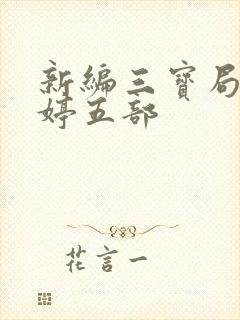 新編三寶局
婷五部
花言一